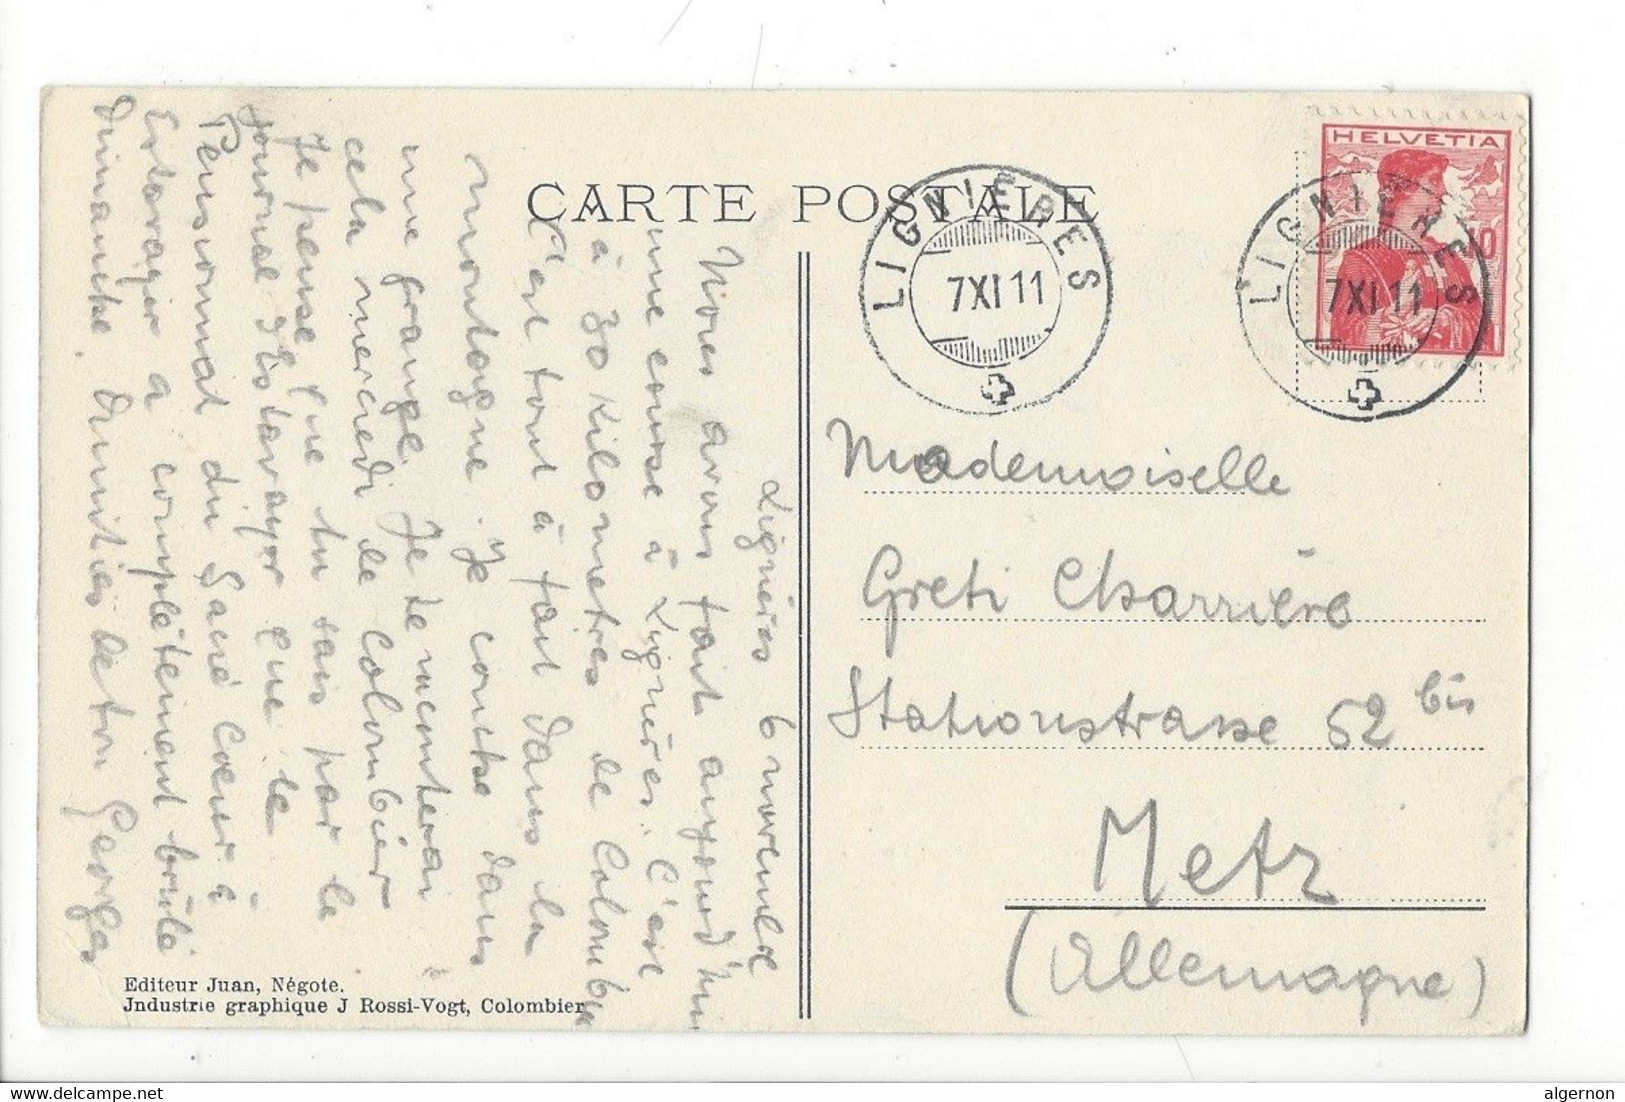 CARTE POSTALE
HELVETIA
10
LIGNIERES
7 XI 11
LIGNIERES
7 XI 11
Lignières 6 novembre
Nous avons fait aujourd'hui
une course à Lignières. C'est
à 30 kilometres de Colombier
C'est tout à fait dans la
montagne. Je couche dans
une grange. Je te raconterai
cela mercredi de Colombier
Je pense que tu sais par le
journal d'Estavayer que le
Pensionnat du Sacré Coeur à
Estavayer a complètement brûlé
dimanche. Amitiés de ton Georges
Mademoiselle
Greti Charrière
Stationstrasse 52 bis
Metz
(Allemagne)
Editeur Juan, Négote.
Jndustrie graphique J Rossi-Vogt, Colombier
www.delcampe.net
algernon